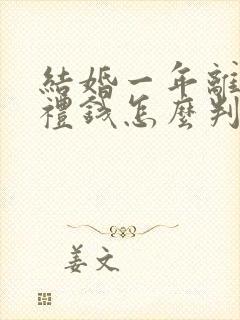 結婚一年離
禮錢怎麼判
姜文